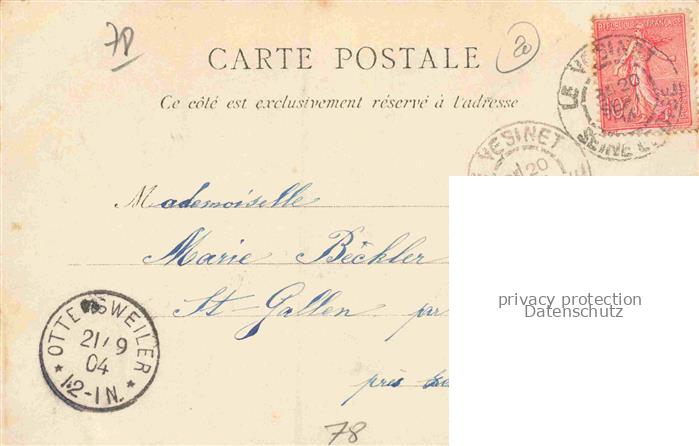 78
CARTE POSTALE
Ce côté est exclusivement réservé à l'adresse
REPUBLIQUE FRANÇAISE
LE VESINET
20
SEINE
VESINET
20
Mademoiselle
Marie Bèckler
St-Gallen pr
près
OTTE SWEILER
21/9
04
12-1N.
78
privacy protection
Datenschutz